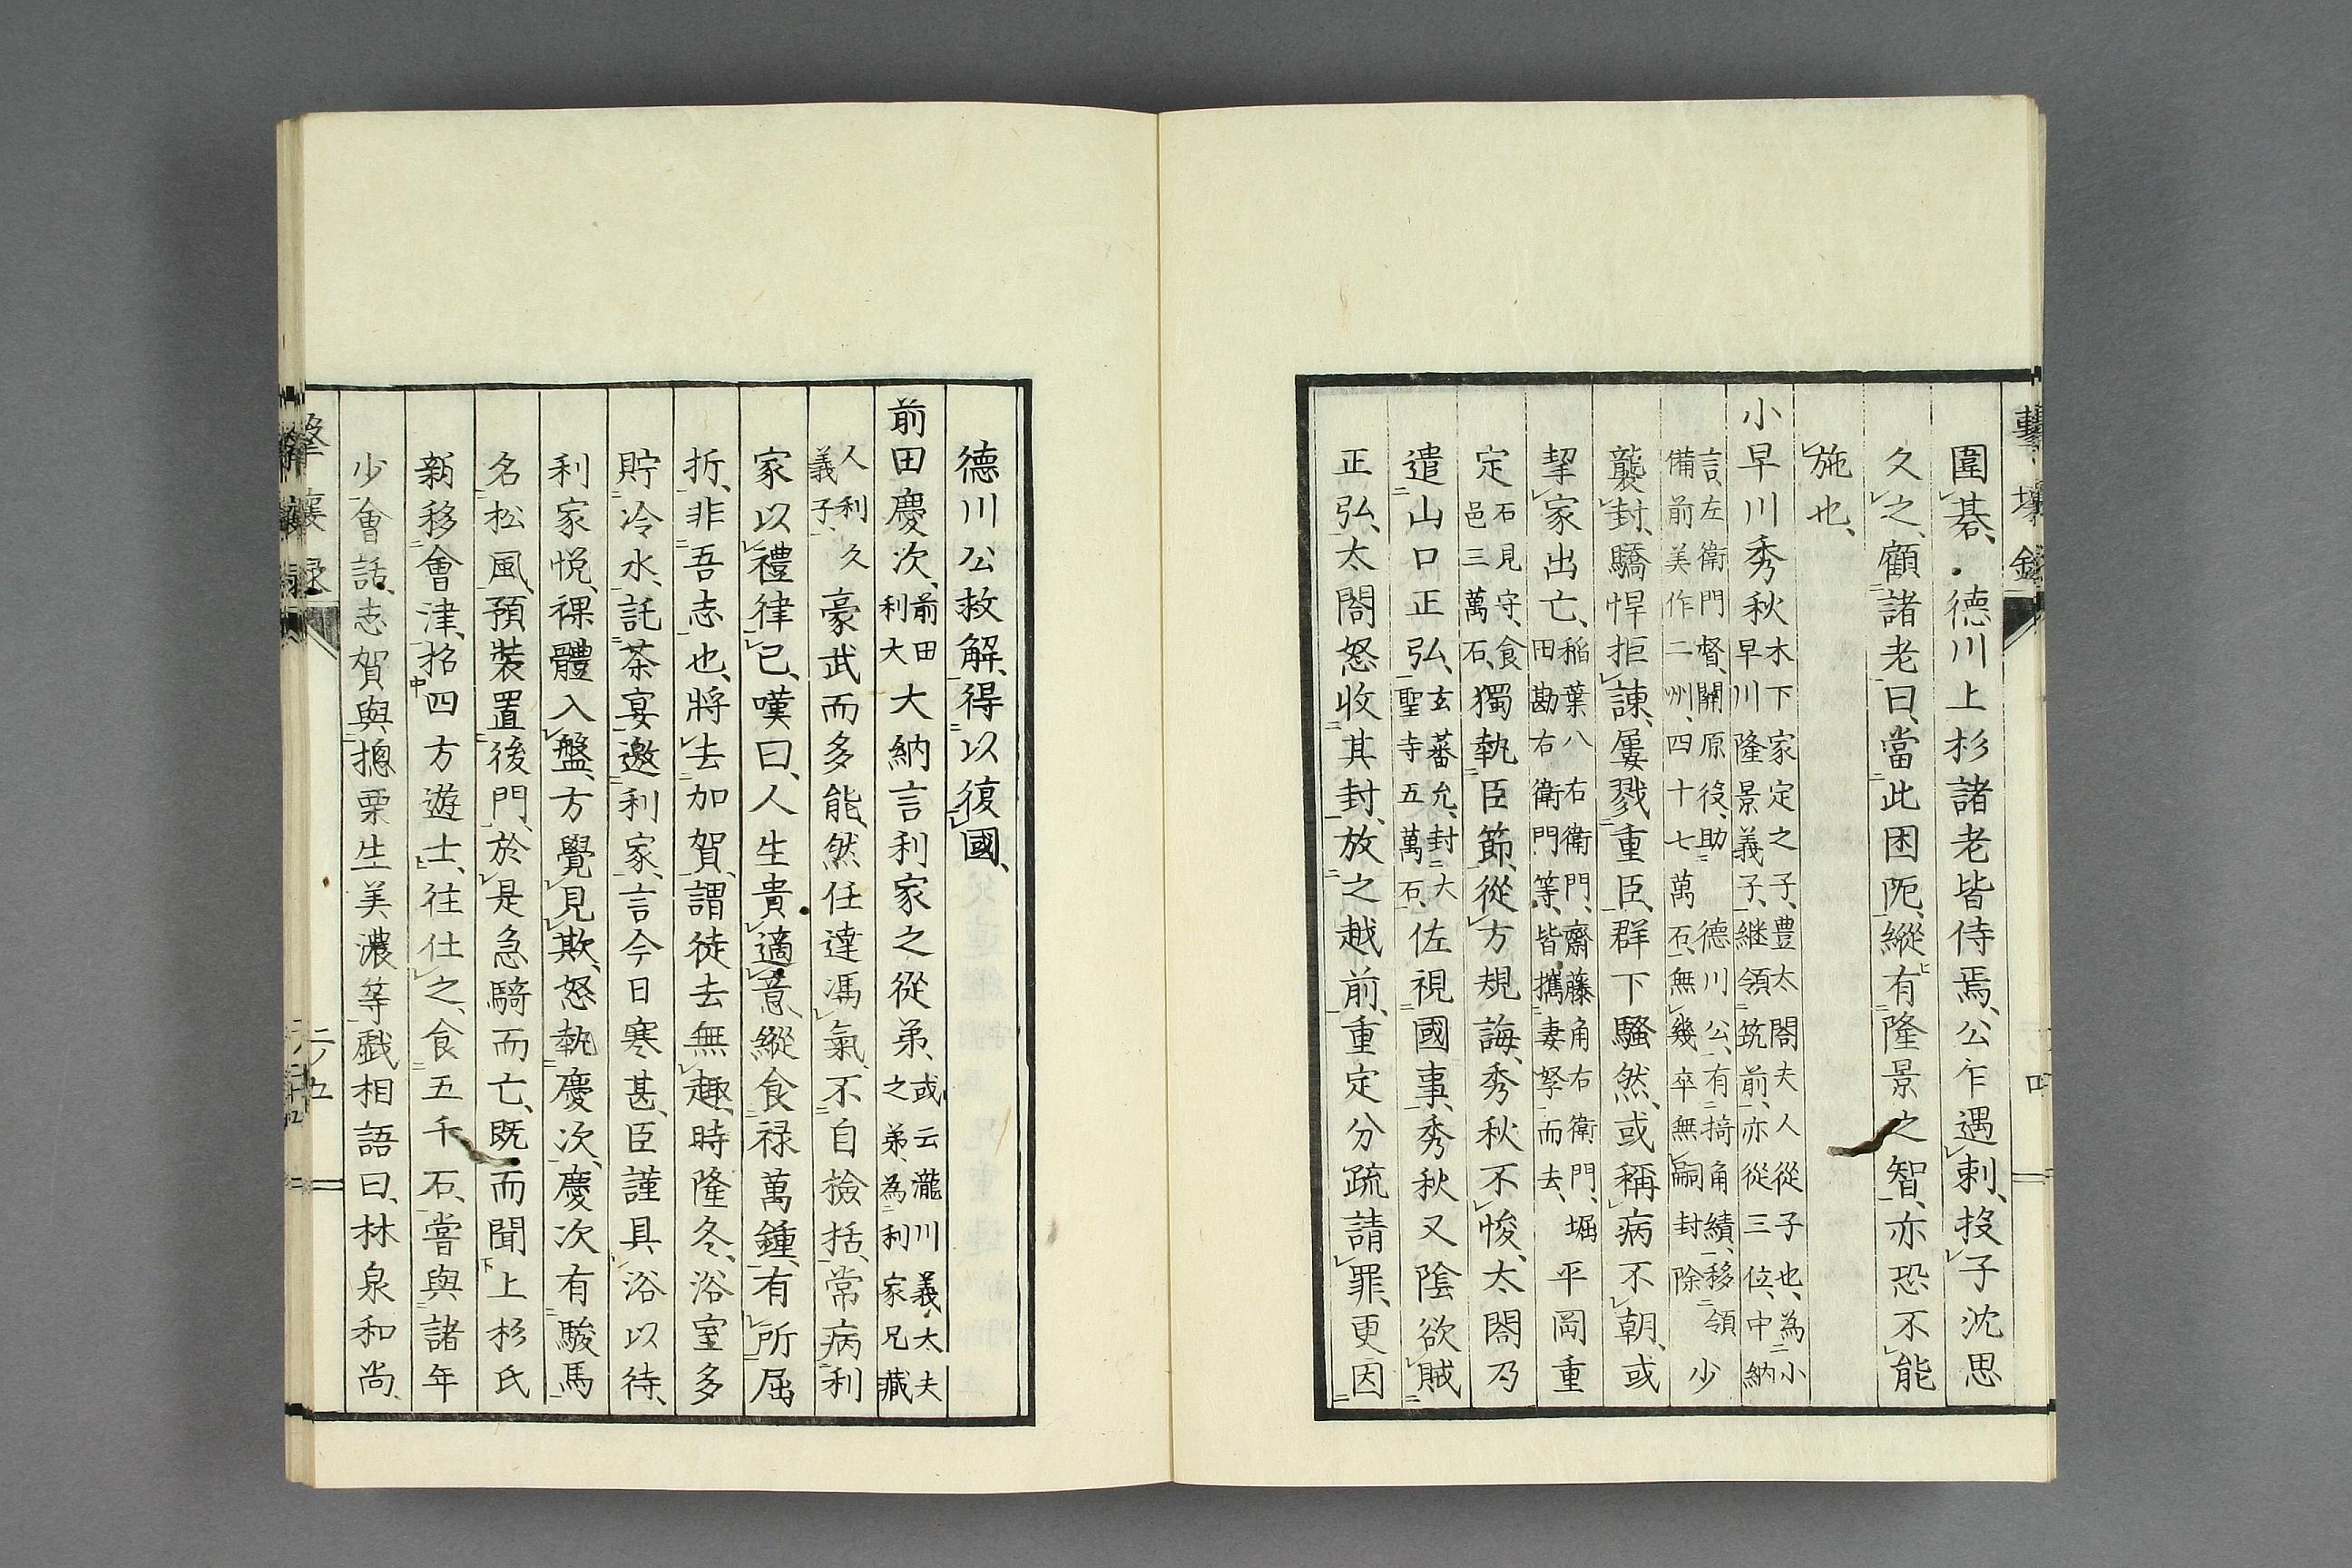 圍碁、德川上杉諸老皆侍焉、公乍遇刺、投子沈思
久之、顧諸老曰、當此困阨、縱有隆景之智、亦恐不能
施也、
小早川秀秋木下家定之子、豊太閤夫人從子也、為小早川隆景義子、継領筑前、亦從三位、中納
言、左衛門督、關原役、助德川公、有掎角績、移領備前美作二州、四十七萬石、無幾卒無嗣封除少
襲封、驕悍拒諫、屢戮重臣、群下騷然、或稱病不朝、或
挈家出亡、稲葉八右衛門、齋藤角右衛門、堀田勘右衛門等、皆攜妻孥而去、平岡重
定石見守、食邑三萬石、獨執臣節、從方規誨、秀秋不悛、太閤乃
遣山口正弘、玄蕃允、封大聖寺五萬石、佐視國事、秀秋又陰欲賊
正弘、太閤怒收其封、放之越前、重定分疏請罪、更因
德川公救解、得以復國、
前田慶次、前田利大大納言利家之從弟、或云瀧川義太夫之弟、為利家兄藏
人利久義子、豪武而多能、然任達馮氣、不自檢括、常病利
家以禮律已、嘆曰、人生貴適意、縱食禄萬鍾、有所屈
折、非吾志也、將去加賀、謂徒去無趣、時隆冬、浴室多
貯冷水、託茶宴邀利家、言今日寒甚、臣謹具浴以待、
利家悦、裸體入盤、方覺見欺、怒執慶次、慶次有駿馬
名松風、預裝置後門、於是急騎而亡、既而聞上杉氏
新移會津、招四方遊士、往仕之、食五千石、嘗與諸年
少會話、志賀與摠栗生美濃等戲相語曰、林泉和尚